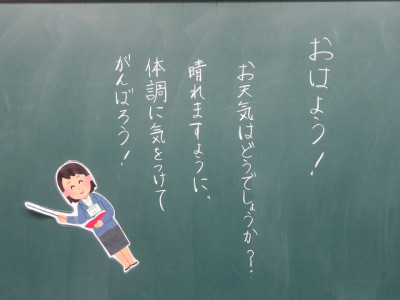 おはよう!
お天気はどうでしょうか?
晴れますように、
体調に気をつけて
がんばろう!